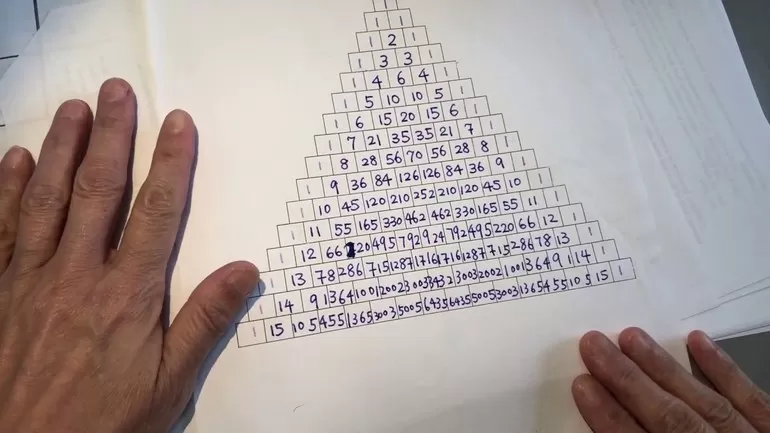 1
1 1
1 2 1
1 3 3 1
1 4 6 4 1
1 5 10 10 5 1
1 6 15 20 15 6 1
1 7 21 35 35 21 7 1
1 8 28 56 70 56 28 8 1
1 9 36 84 126 126 84 36 9 1
1 10 45 120 210 252 210 120 45 10 1
1 11 55 165 330 462 462 330 165 55 11 1
1 12 66 20 495 792 924 792 495 220 66 12 1
1 13 78 286 715 1287 1716 1716 1287 715 286 78 13 1
1 14 91 364 1001 2002 3003 3432 3003 2002 1001 364 91 14 1
1 15 105 455 1365 3003 5005 6435 6435 5005 3003 1365 455 105 15 1